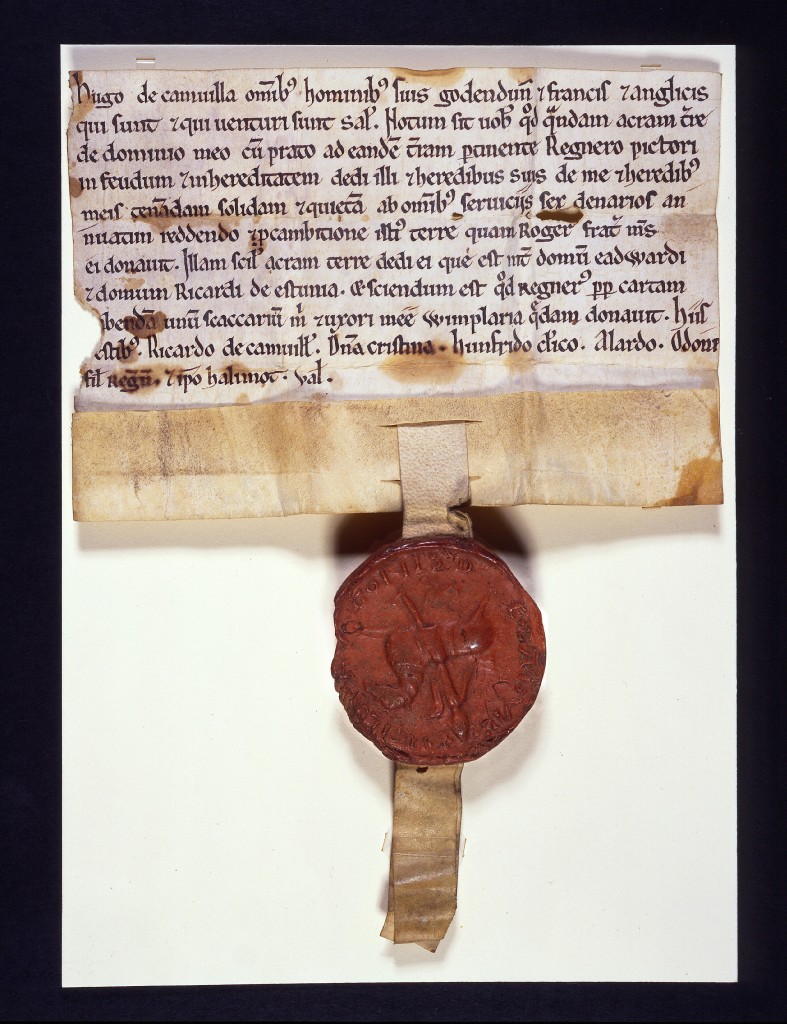 hugo de camuilla omib⁹ hominib⁹ suis godendun̄ ⁊ francis ⁊ anglicis
qui sunt ⁊ qui uenturi sunt sal̄. Notum sit uob̄ qd̄ quādam acram tr̄e
de dominio meo cū prato ad eandē tr̄am ꝑtinente Regnero pictori
in feudum ⁊ in hereditatem dedi illi ⁊ heredibus suis de me ⁊ heredib⁹
meis tenēdam solidam ⁊ quietā ab omib⁹ seruiciis sex denarios an
nuatim reddendo ⁊ ꝑcambitione isti⁹ terre quam Roger⁹ frat̄ m̄s
ei donauit. Illam scil̄ acram terre dedi ei que est int̄ domū eadwardi
⁊ domum Ricardi de estunia. & sciendum est qd̄ Regner⁹ ꝓp cartam
hendā unū scaccariū m̄ ⁊ uxori meē wimplaria qd̄am donauit. hiis
estib⁹. Ricardo de camuill̄. Dn̄a cristina. hunfrido cl̄ico. Alardo. Odone
fil̄ Regn̄. ⁊ ip̄o halimot. val̄.